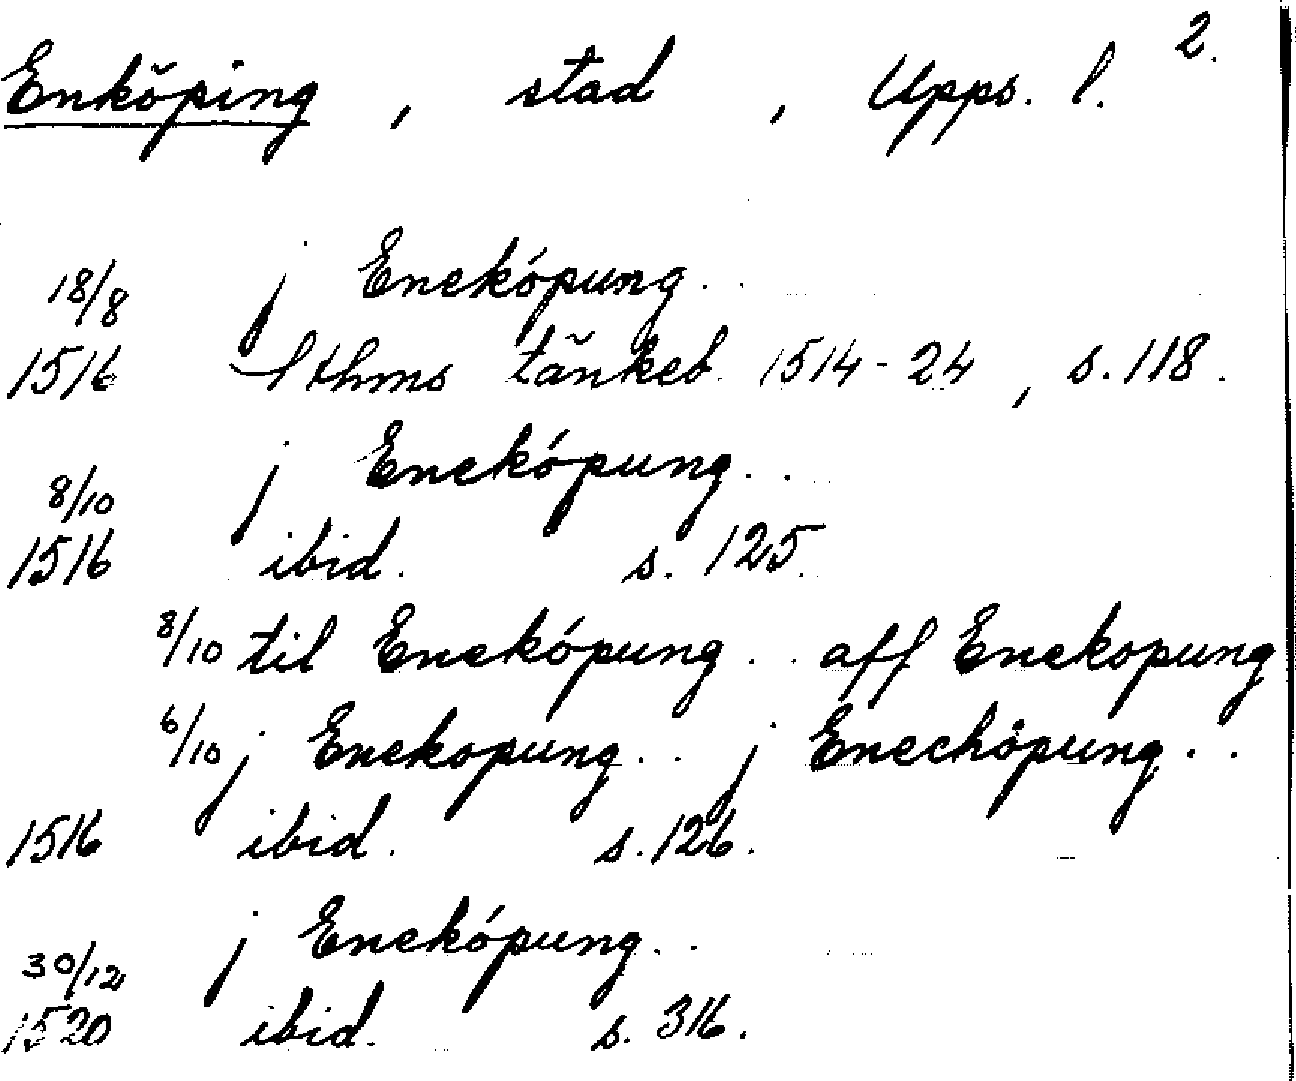 2.
Enköping, stad, Upps. l.
18/8 j Enekópung..
1516 Sthms tänkeb. 1514-24, s. 118.
8/10 j Enekópung..
1516 ibid. s. 125.
8/10 til Enekópung.. aff Enekopung
6/10 j Enekopung.. j Enechöpung..
1516 ibid. s. 126.
30/12 j Enekópung..
1520 ibid. s. 316.